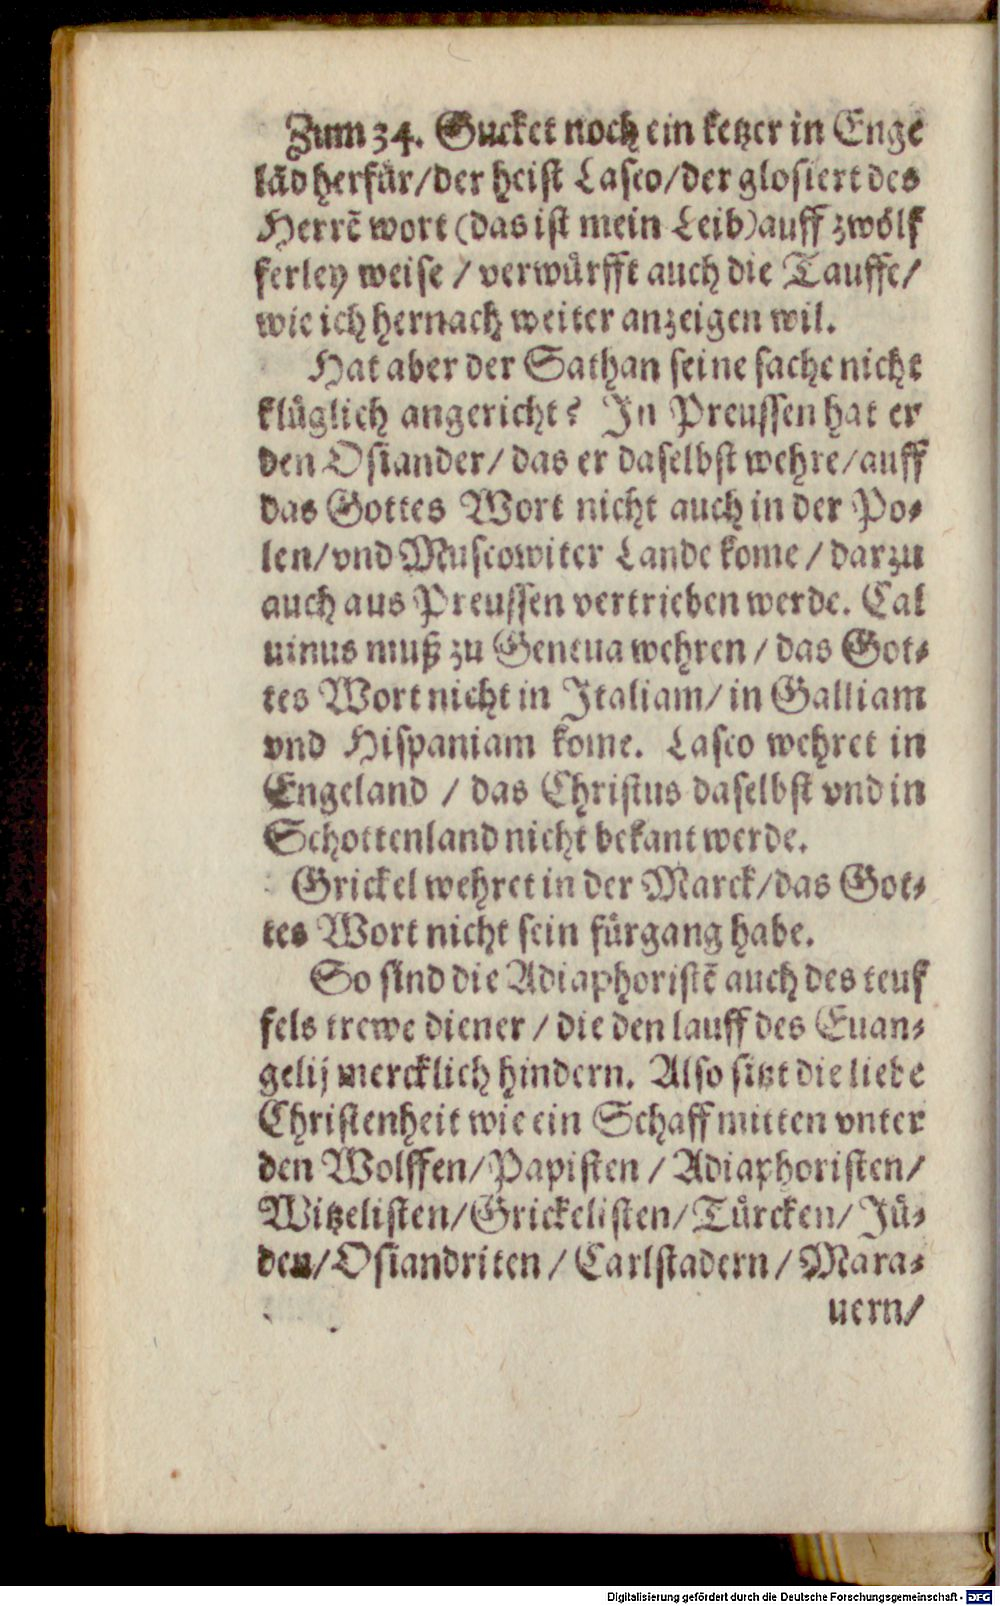 Zum 34. Gucket noch ein ketzer in Enge
lãd herfür/der heist Lasco/der glosiert des
Herrẽ wort (das ist mein Leib)auff zwölf
ferley weise / verwürfft auch die Tauffe/
wie ich hernach weiter anzeigen wil.
Hat aber der Sathan seine sache nicht
klüglich angericht? In Preussen hat er
den Osiander/ das er daselbst wehre/auff
das Gottes Wort nicht auch in der Po⸗
len/vnd Muscowiter Lande kome / darzu
auch aus Preussen vertrieben werde. Cal
uinus muß zu Geneua wehren / das Got⸗
tes Wort nicht in Italiam/ in Galliam
vnd Hispaniam kome. Lasco wehret in
Engeland / das Christus daselbst vnd in
Schottenland nicht bekant werde.
Grickel wehret in der Marck/das Got⸗
tes Wort nicht sein fürgang habe.
So sind die Adiaphoristẽ auch des teuf
fels trewe diener / die den lauff des Euan⸗
gelij mercklich hindern. Also sitzt die liebe
Christenheit wie ein Schaff mitten vnter
den Wolffen/Papisten / Adiaphoristen/
Witzelisten/Grickelisten/Türcken/ Jü⸗
den/Osiandriten / Carlstadern / Mara⸗
uern/
Digitalisierung gefördert durch die Deutsche Forschungsgemeinschaft - DFG